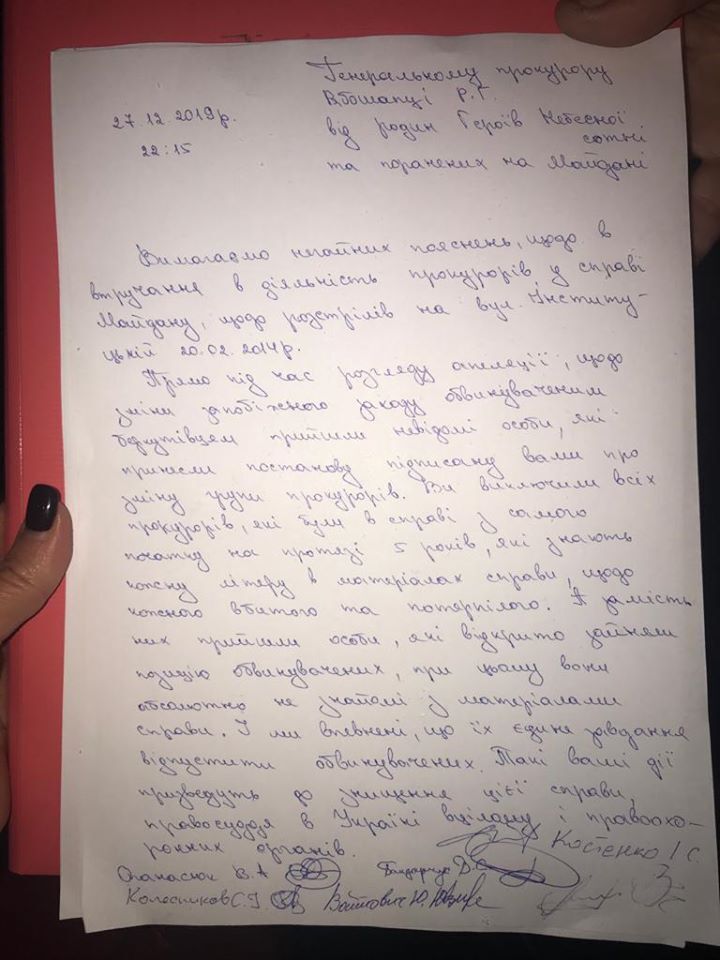 Генеральному прокурору
27.12.2019р.
Рябошапці Р.Г.
22:15
від родин Героїв Небесної
сотні
та поранених на Майдані
Вимагаємо негайних пояснень, щодо в
втручання в діяльність прокурорів у справі
Майдану, щодо розстрілів на вул. Институ-
цькій 20.02.2014р.
Прямо під час розгляду апеляції, щодо
зміни запобіжного заходу обвинуваченим
беркутівцем прийшли невідомі особи, які
принесли постанову підписану вами про
зміну групи прокурорів. Ви виключили всіх
прокурорів, які були в справі з самого
початку на протязі 5 років, які знають
кожну літеру в матеріалах справи, щодо
кожного вбитого та потерпілого. А замість
них прийшли особи, які відкрито зайняли
позицію обвинувачених, при цьому вони
абсолютно не знайомі з матеріалами
справи. І ми впевнені, що їх єдине завдання
відпустити обвинувачених. Такі ваші дії
призведуть до знищення цієї справи,
правосуддя в Україні вцілому і правоохо-
ронних органів.
Костенко І С.
Опанасюк В.А
Бондарчук В.
Колесников С.
Войтович Ю.